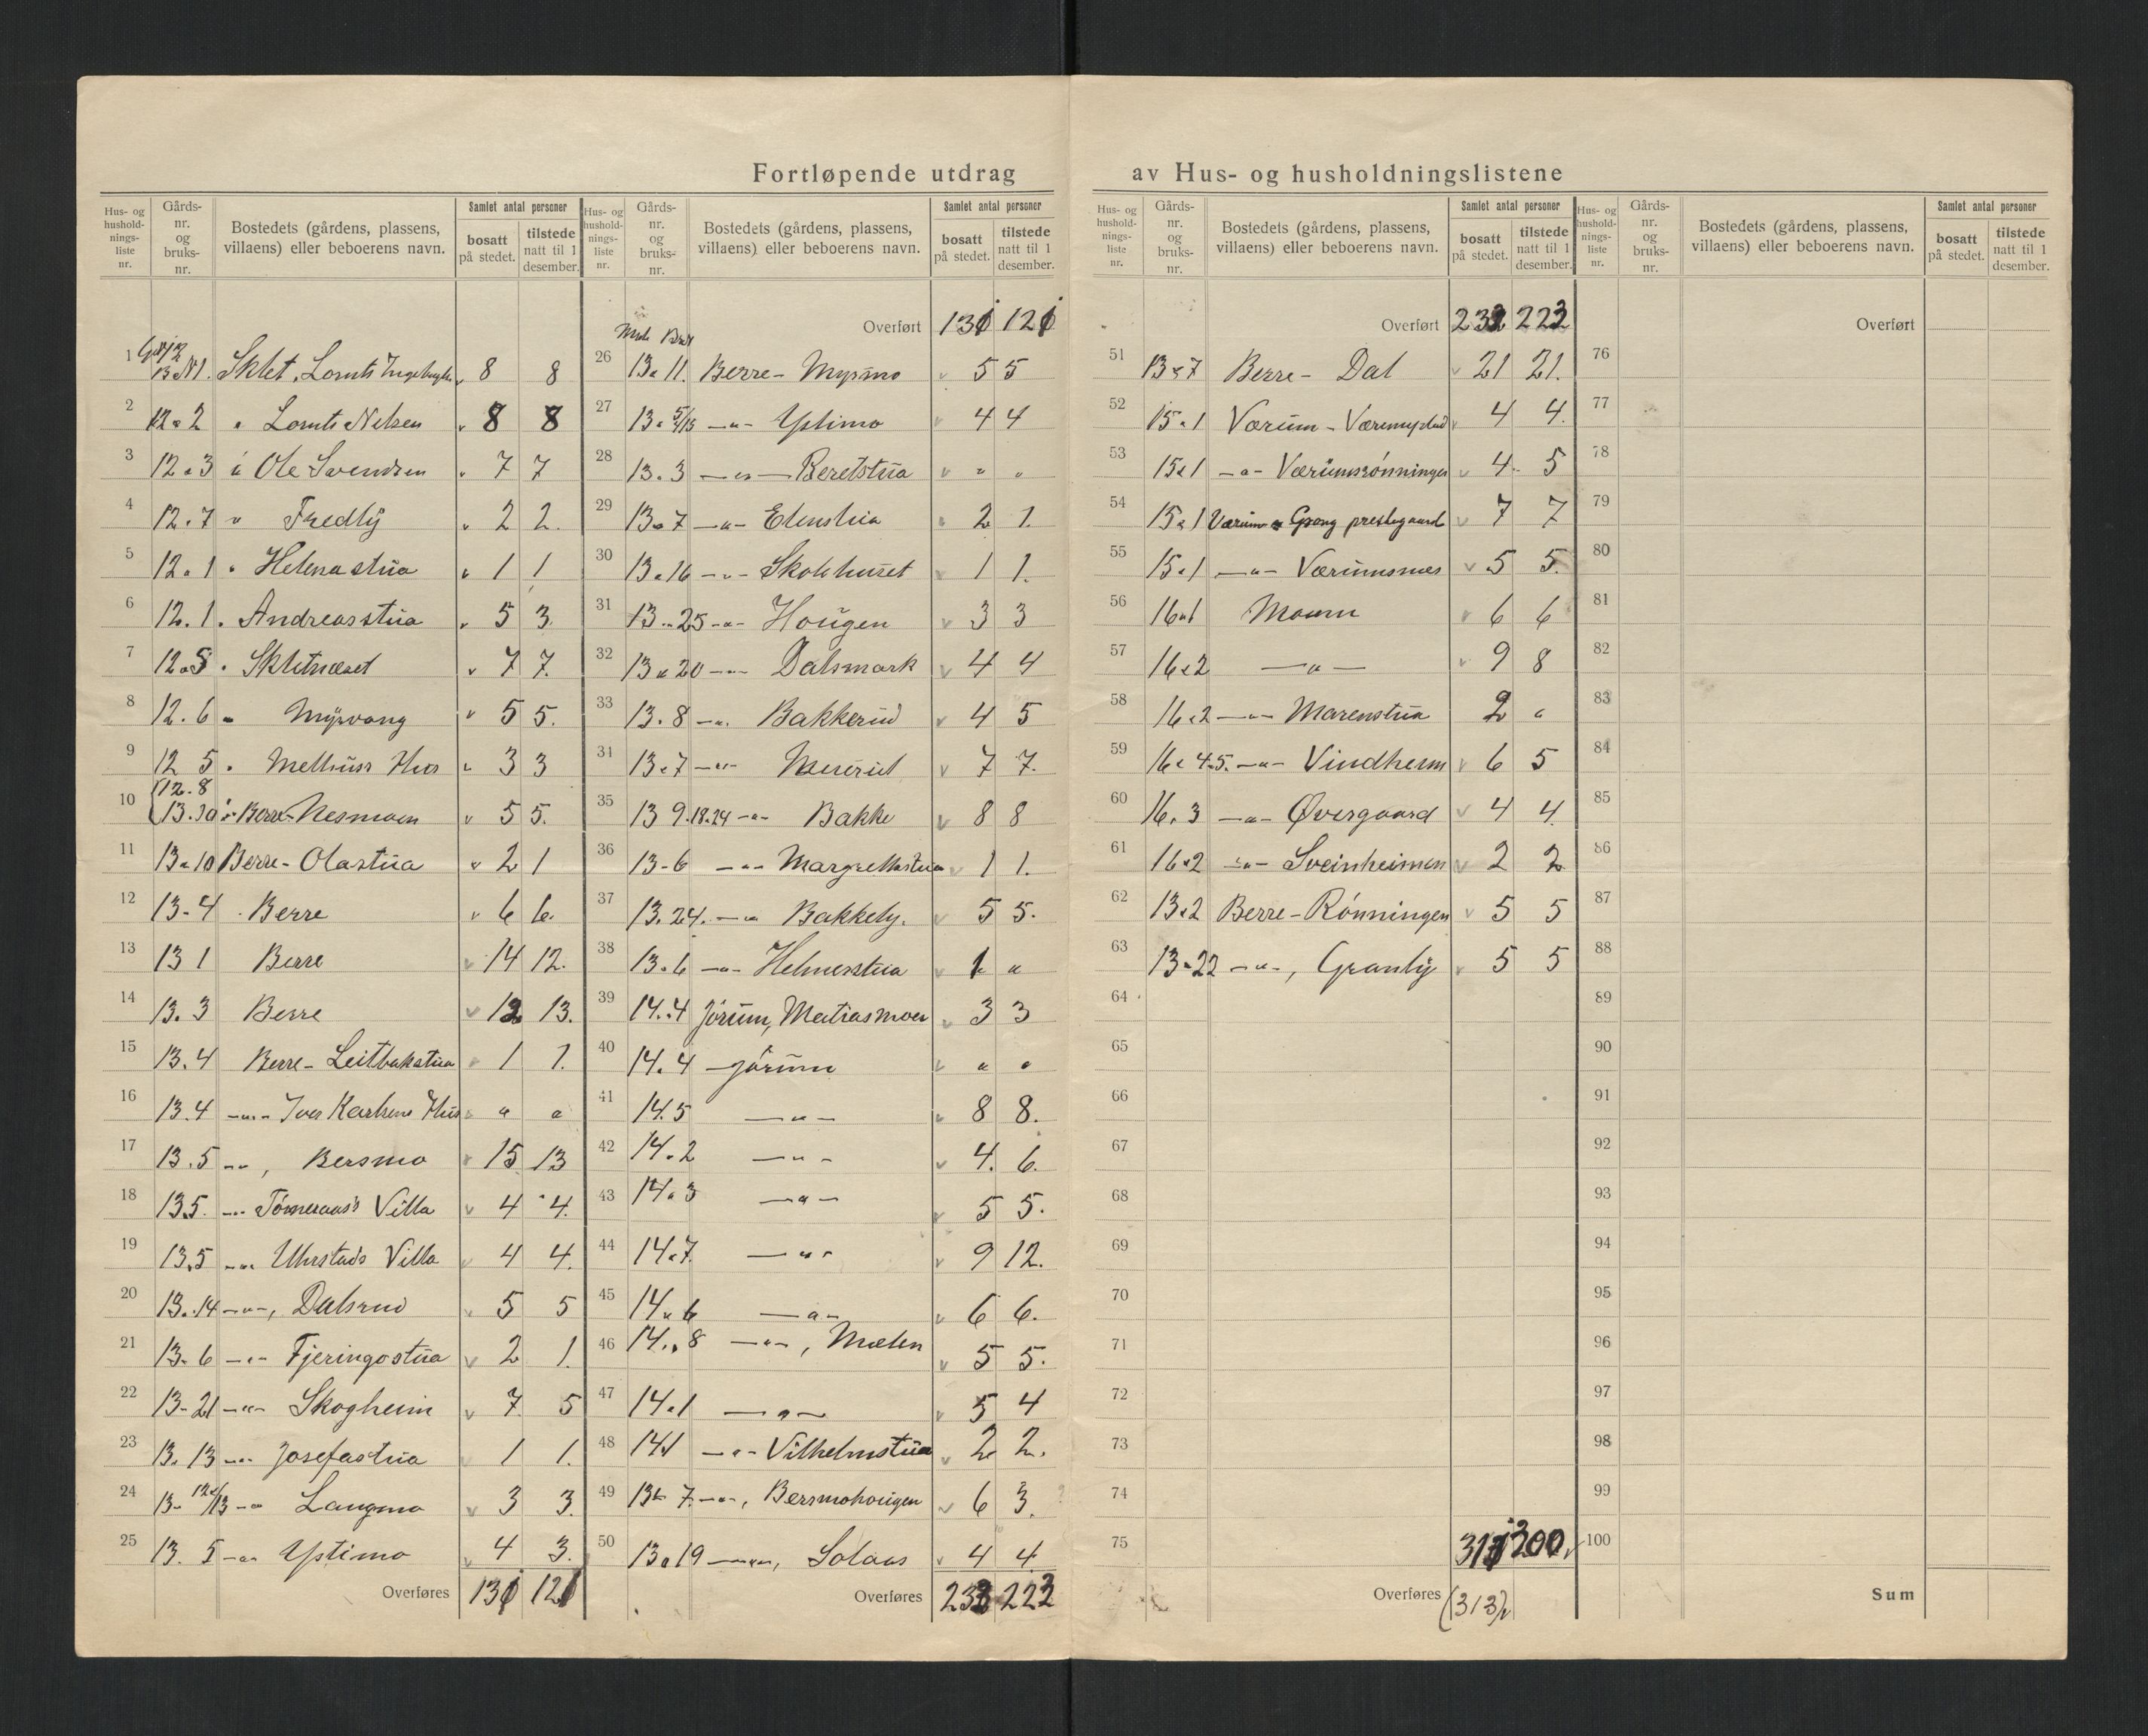 Fortløpende utdrag av Hus- og husholdningslistene
Hus- og hushold-nings-liste nr. Gårds-nr. og bruks-nr. Bostedets (gårdens, plassens, villaens) eller beboerens navn. Samlet antal personer bosatt på stedet. tilstede natt til 1 desember.
1 Sklet, Lornts 8 8
2 12 " 2 " Lornts Nilsen 8 8
3 12 " 3 " Ole Svendsen 7 7
4 12 . 7 " Fredly 2 2.
5 12 . 1 " Helenastua 1 1
6 12 . 1 . Andreasstua 5 3.
7 12 . 3 . Skletnæset 7 7.
8 12 . 6 " Myrvang 5 5.
9 12 5 . Melhuss Hus 3 3
12 . 8
10 13.30 " Berre-Nesmoen 5 5.
11 13 " 10 Berre - Olastua 2 1
12 13 - 4 Berre 6 6.
13 13 1 Berre 14 12.
14 13. 3 Berre 12 13.
15 13. 4 Berre - Leitbakstua 1 1.
16 13. 4 — " — Iver Karlsens Hus " "
17 13. 5 — " , Bersmo 15 13
18 13 5. — " Tømeraas's Villa 4 4.
19 13. 5 — " Villa 4 4.
20 13. 14 — " —, Dalsrud 5 5
21 13. 6 — " — Fjeringostua 2 1.
22 13 - 21 — " — Skogheim 7. 5
23 13. 13 — " Josefastua 1 1.
24 13 - 12/13 — " Langmo 3 3.
25 13. 5 — " Ystimo 4 3.
Overføres 131 121
Hus- og hushold-nings-liste nr. Gårds-nr. og bruks-nr. Bostedets (gårdens, plassens, villaens) eller beboerens navn. Samlet antal personer bosatt på stedet. tilstede natt til 1 desember.
Overført 131 121
26 13 " 11. Berre - Myrmo 5 5
27 13 . — " — Ystimo 4 4
28 13 . 3 — " — Beretstua " "
29 13 " 7 — " — Elenstua 2 1.
30 13 . 16 — " — Skolehuset 1 1.
31 13 . 25 — " — Hougen 3 3
32 13 " 20 — " — Dalsmark 4 4
33 13 . 8 — " Bakkerud 4 5
34 13 . 7 — " — Meieriet 7 7.
35 13 9.18.24 — " — Bakke 8 8
36 13 - 6 — " — Margrethastua 1 1.
37 13. 24. — " Bakkely. 5 5.
38 13 . 6 — " — Helmerstua 1 "
39 14. 4 Jørum, Matiasmoen 3 3
40 14. 4 Jørum " "
41 14. 5 — " — 8 8.
42 14. 2 — " — 4. 6.
43 14 " 3 — " — 5 5.
44 14 . 7. — " — 9 12.
45 14 " 6 — " — 6 6.
46 14 . 8 — " —, Mælen 5 5.
47 14 . 1 — " — 5 4
48 14 1 — " — Vilhelmstua 2 2.
49 13 - 7. — " —, Bersmohougen 6 3.
50 13 " 19 — " —, Solaas 4 4
Overføres 232 222
Hus- og hushold-nings-liste nr. Gårds-nr. og bruks-nr. Bostedets (gårdens, plassens, villaens) eller beboerens navn. Samlet antal personer bosatt på stedet. tilstede natt til 1 desember.
Overført 232 222
51 13 " 7 Berre - Dal 21 21.
52 15 . 1 Værum - 4 4.
53 15 " 1 — " — Værumsrønningen 4 5
54 15 " 1 Værum " Grong prestegaard 7 7
55 15 . 1 — " — Værumsnes 5 5.
56 16 " 1 Moum 6 6
57 16 " 2 — " — 9 8
58 16 . 2 — " — Marenstua 2 "
59 16 . 4.5. — " — Vindheim 6 5
60 16 . 3 — " — Øvergaard 4 4.
61 16 " 2 — " — Sveinheimen 2 2
62 13 " 2 Berre - Rønningen 5 5
63 13 " 22 — " —, Granly 5 5
64
65
66
67
68
69
70
71
72
73
74
75 311 200
Overføres (313)
Hus- og hushold-nings-liste nr. Gårds-nr. og bruks-nr. Bostedets (gårdens, plassens, villaens) eller beboerens navn. Samlet antal personer bosatt på stedet. tilstede natt til 1 desember.
Overført
76
77
78
79
80
81
82
83
84
85
86
87
88
89
90
91
92
93
94
95
96
97
98
99
100
Sum